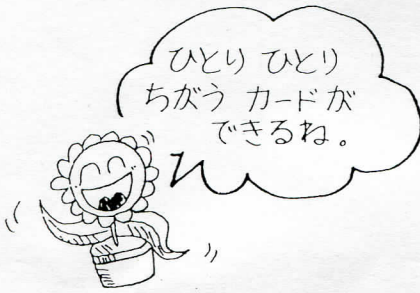 ひとり ひとり
ちがう カードが
できるね。